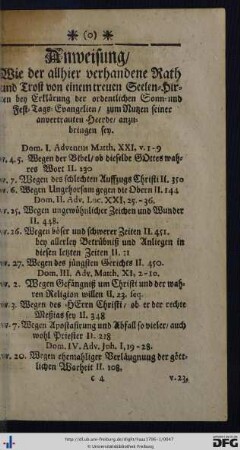 * (0) *
Anweisung/
Wie der allhier verhandene Rath
und Trost von einem treuen Seelen-Hir-
ten bey Erklärung der ordentlichen Sonn- und
Fest-Tags-Evangelien/ zum Nutzen seiner
anvertrauten Heerde/ anzu-
bringen sey.
Dom. I. Adventus Matth. XXI. v. 1-9
vv. 4. 5. Wegen der Bibel/ ob dieselbe GOttes wah-
res Wort II. 130
vv. 7. Wegen des schlechten Auffzugs Christi II. 350
vv. 6. Wegen Ungehorsam gegen die Obern II. 144
Dom. II. Adv. Luc. XXI, 25.-36.
vv. 25. Wegen ungewöhnlicher Zeichen und Wunder
II. 448.
vv. 26. Wegen böser und schwerer Zeiten II. 451.
bey allerley Betrübniß und Anliegen in
diesen letzten Zeiten II. 11
vv. 27. Wegen des jüngsten Gerichts II. 450
Dom. III. Adv. Matth. XI, 2-10.
vv. 2. Wegen Gefängniß um Christi und der wah-
ren Religion willen II. 23. seq.
vv. 3. Wegen des HErrn Christi/ ob er der rechte
Messias sey II. 348
vv. 7. Wegen Apostasirung und Abfall so vieler/ auch
wohl Priester II. 218
Dom. IV. Adv. Joh. I, 19-28.
vv. 20. Wegen ehemahliger Verläugnung der gött-
lichen Warheit II. 108.
c 4 v. 23,
http://dfg.ub.uni-freiburg.de
© Universitätsbibliothek Freiburg